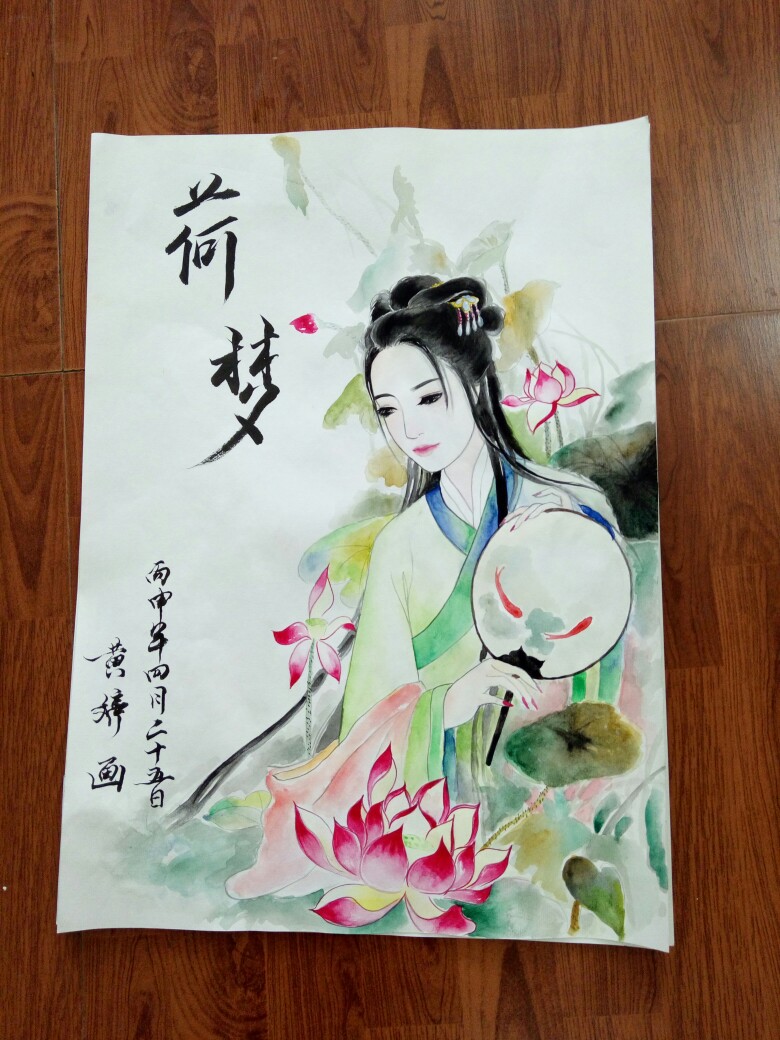 荷梦
丙申年四月二十五日
黄婷画